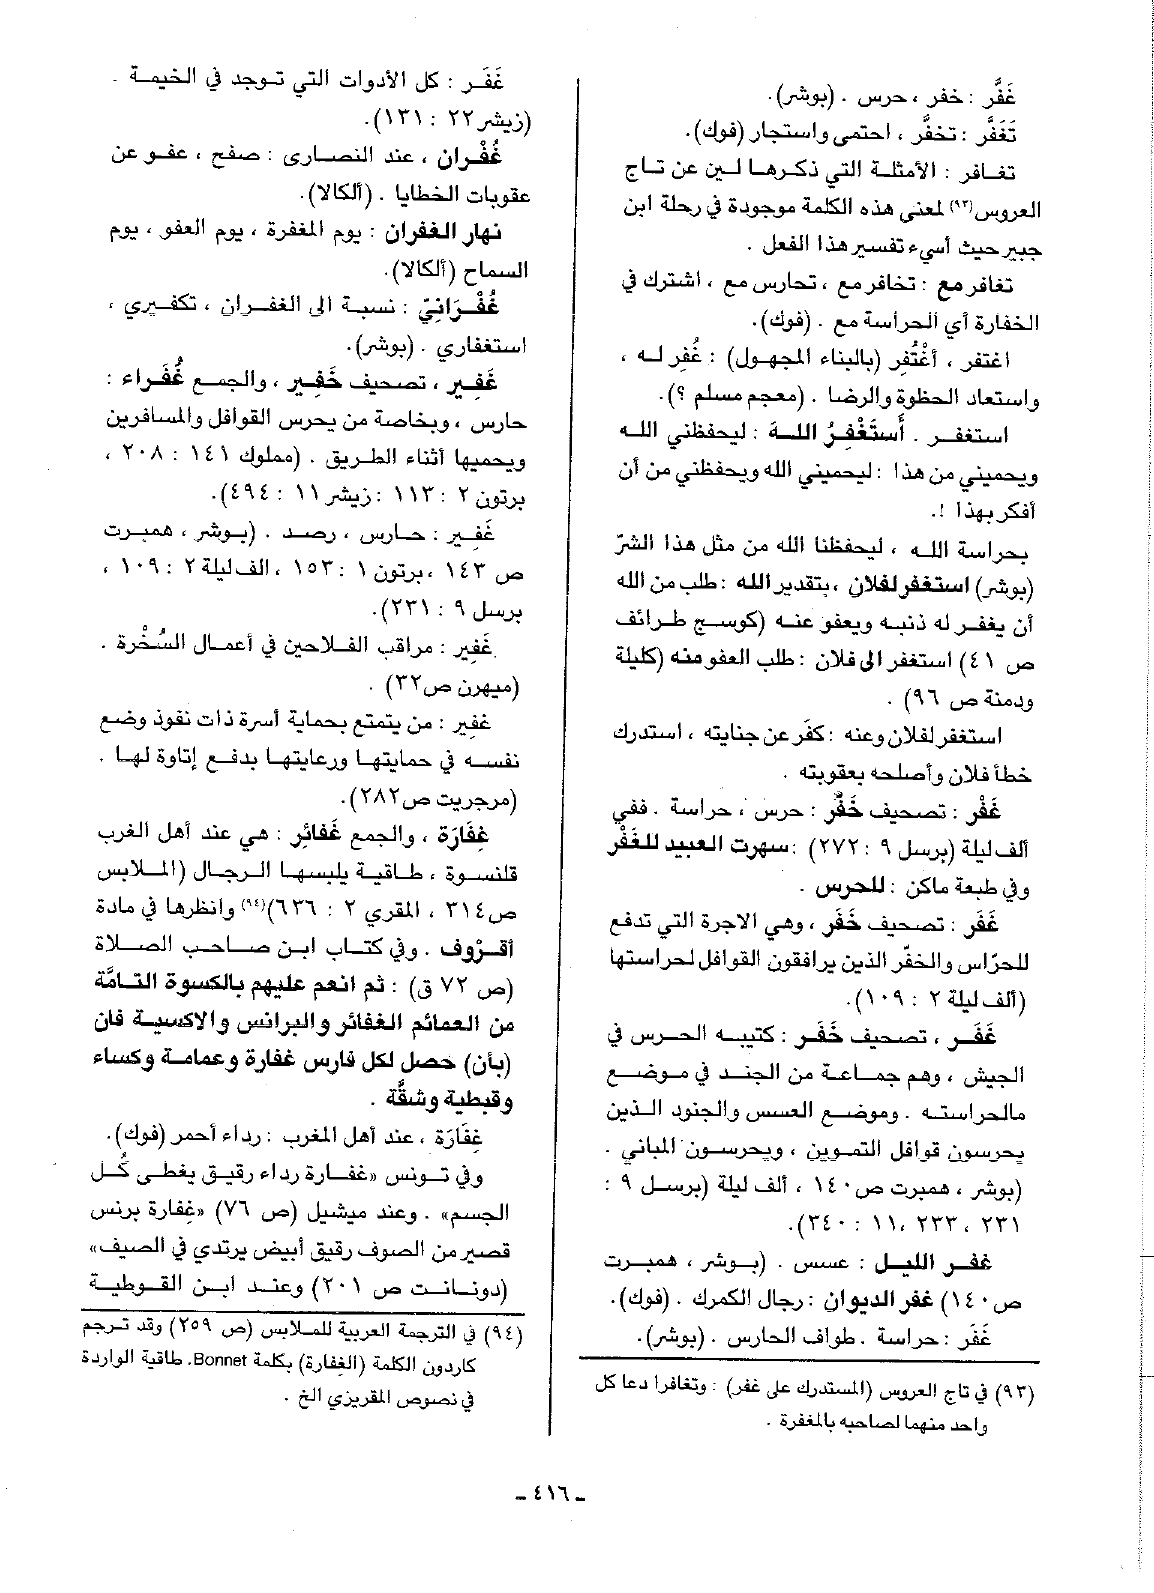 غَفَّر : خفر ، حرس . (بوشر).
تَغَفَّر : تخفَّر ، احتمى واستجار (فوك).
تغافر : الأمثلة التي ذكرها لين عن تاج
العروس(٩٣) لمعنى هذه الكلمة موجودة في رحلة ابن
جبير حيث أسيء تفسير هذا الفعل .
تغافر مع : تخافر مع ، تحارس مع ، اشترك في
الخفارة أي الحراسة مع . (فوك).
اغتفر ، أغْتُفِر (بالبناء المجهول) : غُفِر له ،
واستعاد الحظوة والرضا . (معجم مسلم ؟).
استغفر . أَستَغْفِرُ اللـه : ليحفظني الله
ويحميني من هذا : ليحميني الله ويحفظني من أن
أفكر بهذا !.
بحراسة الله ، ليحفظنا الله من مثل هذا الشرّ
(بوشر) استغفر لفلان ، بتقدير الله : طلب من الله
أن يغفر له ذنبه ويعفو عنه (كوسج طرائف
ص ٤١) استغفر الى فلان : طلب العفو منه (كليلة
ودمنة ص ٩٦) .
استغفر لفلان وعنه : كفَّر عن جنايته ، استدرك
خطأ فلان وأصلحه بعقوبته .
غَفْر : تصحيف خَفْر : حرس ، حراسة . ففي
ألف ليلة (برسل ٩ : ٢٧٢) : سهرت العبيد للغَفْر
وفي طبعة ماكن : للحرس .
غَفَر : تصحيف خَفَر ، وهي الاجرة التي تدفع
للحرّاس والخفّر الذين يرافقون القوافل لحراستها
(ألف ليلة ٢ : ١٠٩).
غَفَر ، تصحيف خَفَر : كتيبه الحرس في
الجيش ، وهم جماعة من الجند في موضع
مالحراسته . وموضع العسس والجنود الذين
يحرسون قوافل التموين ، ويحرسون المباني .
(بوشر ، همبرت ص ١٤٠ ، ألف ليلة (برسل ٩ :
٢٣١ ، ٢٣٣ ، ١١ : ٣٤٠).
غفر الليل : عسس . (بوشر ، همبرت
ص ١٤٠) غفر الديوان : رجال الكمرك . (فوك).
غَفَر : حراسة . طواف الحارس . (بوشر).
(٩٣) في تاج العروس (المستدرك على غفر) : وتغافرا دعا كل
واحد منهما لصاحبه بالمغفرة .
غَفَر : كل الأدوات التي توجد في الخيمة .
(زيشر ٢٢ : ١٣١).
غُفْران ، عند النصارى : صفح ، عفو عن
عقوبات الخطايا . (ألكالا).
نهار الغفران : يوم المغفرة ، يوم العفو ، يوم
السماح (ألكالا).
غُفْرَانيّ : نسبة الى الغفران ، تكفيري ،
استغفاري . (بوشر).
غَفير ، تصحيف خَفير ، والجمع غُفَراء :
حارس ، وبخاصة من يحرس القوافل والمسافرين
ويحميها أثناء الطريق . (مملوك ١٤١ : ٢٠٨ ،
برتون ٢ : ١١٣ : زيشر ١١ : ٤٩٤).
غَفِير : حارس ، رصد . (بوشر ، همبرت
ص ١٤٣ ، برتون ١ : ١٥٣ ، الف ليلة ٢ : ١٠٩ ،
برسل ٩ : ٢٣١).
غَفِير : مراقب الفلاحين في أعمال السُّخْرة .
(ميهرن ص ٣٢) .
غفير : من يتمتع بحماية أسرة ذات نفوذ وضع
نفسه في حمايتها ورعايتها بدفع إتاوة لها .
(مرجريت ص ٢٨٢).
غِفَارَة ، والجمع غَفائر : هي عند أهل الغرب
قلنسوة ، طاقية يلبسها الرجال (الملابس
ص ٣١٤ ، المقري ٢ : ٦٣٦)(٩٤) وانظرها في مادة
أقرُوف . وفي كتاب ابن صاحب الصلاة
(ص ٧٢ ق) : ثم انعم عليهم بالكسوة التامَّة
من العمائم الغفائر والبرانس والاكسية فان
(بأن) حصل لكل فارس غفارة وعمامة وكساء
وقبطية وشقَّة .
غِفَارَة ، عند أهل المغرب : رداء أحمر (فوك).
وفي تونس «غفارة رداء رقيق يغطى كُل
الجسم» . وعند ميشيل (ص ٧٦) «غفارة برنس
قصير من الصوف رقيق أبيض يرتدي في الصيف»
(دونانت ص ٢٠١) وعند ابن القوطية
(٩٤) في الترجمة العربية للملابس (ص ٢٥٩) وقد ترجم
كاردون الكلمة (الغفارة) بكلمة Bonnet. طاقية الواردة
في نصوص المقريزي الخ .
ـ ٤١٦ ـ